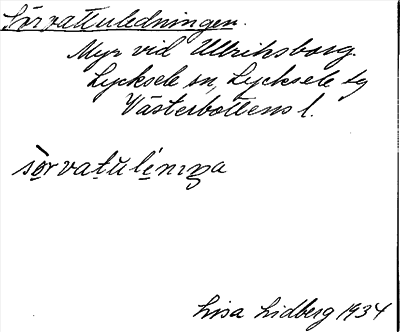 Sörvattuledningen.
Myr vid Ullriksborg.
Lycksele sn, Lycksele tg
Västerbottens l.
sòrvatŭlénıŋa
Lisa Lidberg 1934